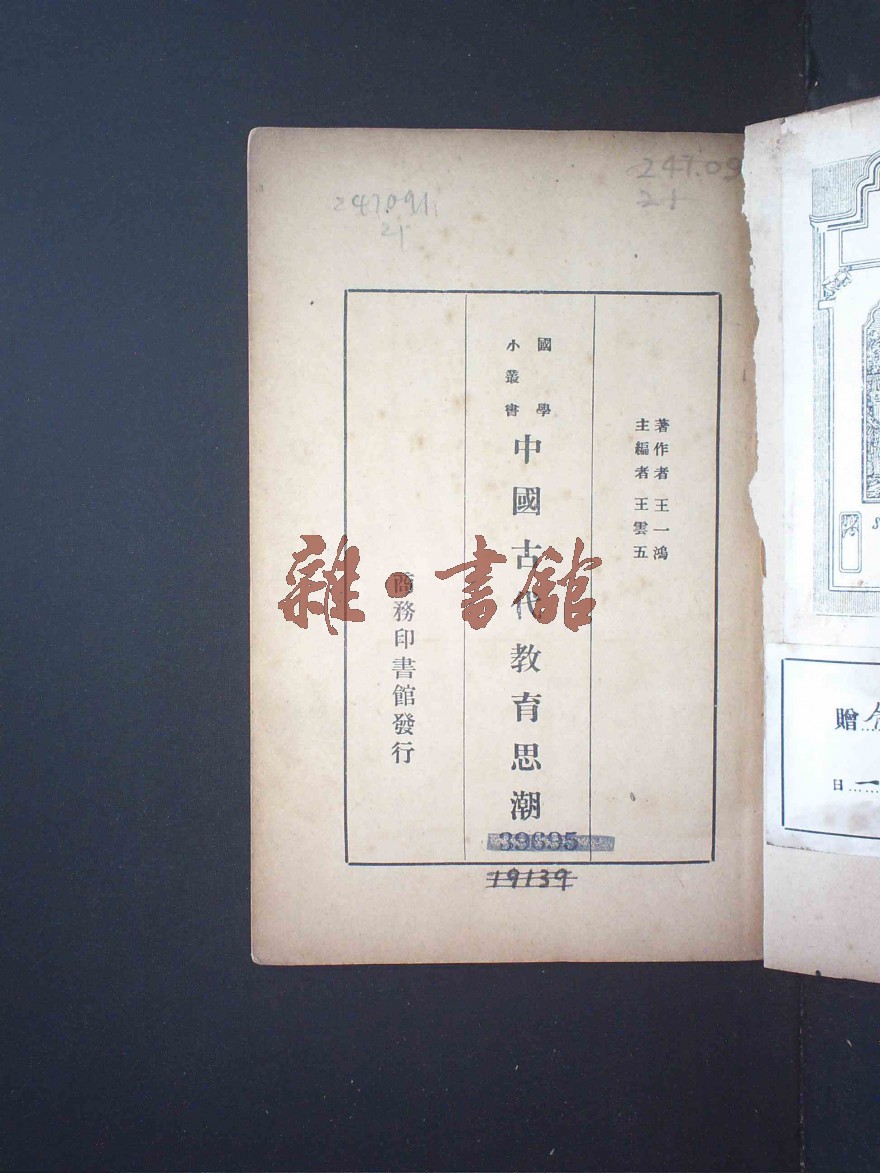 247.091
21
247.09
21
著作者 王一鴻
主編者 王雲五
國學
小叢書
中國古代教育思潮
商務印書館發行
雜·書館
39695
19139
贈
日